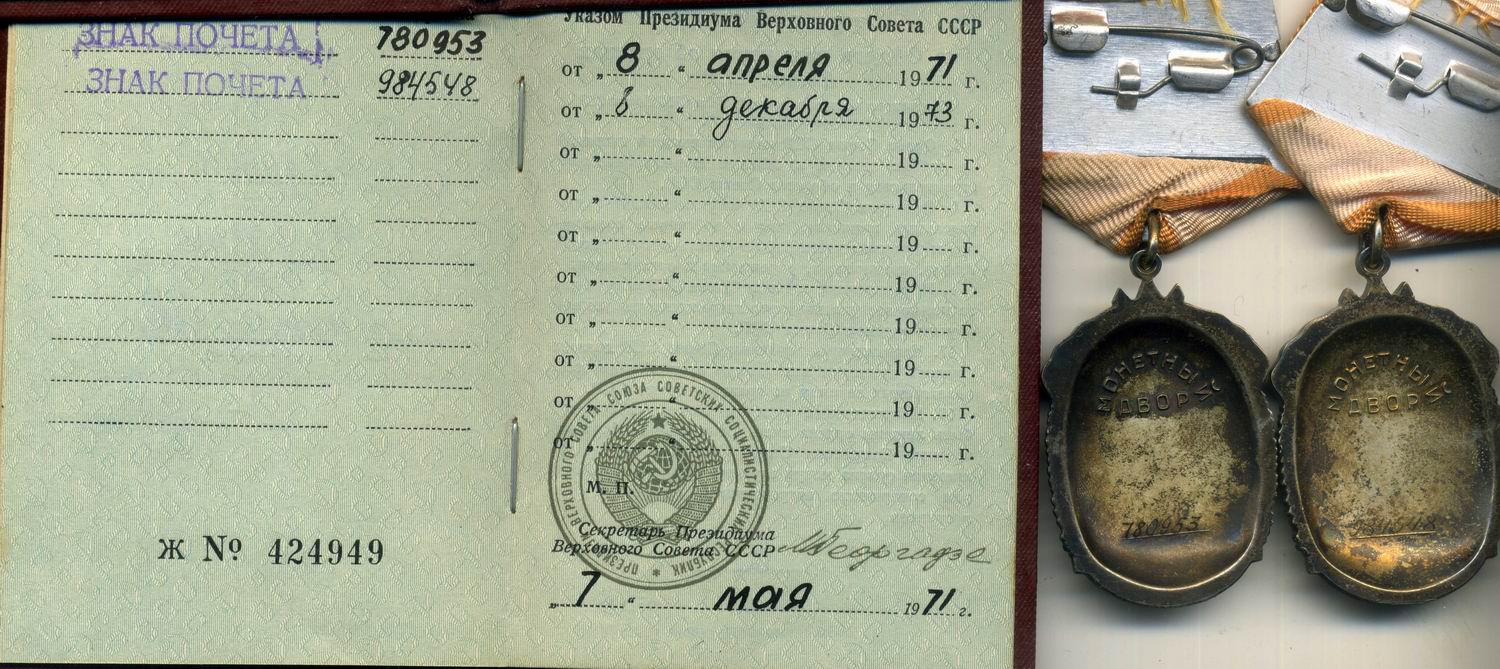 ЗНАК ПОЧЕТА 780953
ЗНАК ПОЧЕТА 984548
Ж № 424949
Указом Президиума Верховного Совета СССР
от „ 8 “ апреля 1971 г.
от „ 6 “ декабря 1973 г.
от „ “ 19 г.
от „ “ 19 г.
от „ “ 19 г.
от „ “ 19 г.
от „ “ 19 г.
от „ “ 19 г.
от „ “ 19 г.
от „ “ 19 г.
М. П.
Секретарь Президиума
Верховного Совета СССР МГеоргадзе
„ 7 “ мая 1971 г.
ПРЕЗИДИУМ ВЕРХОВНОГО СОВЕТА СОЮЗА СОВЕТСКИХ СОЦИАЛИСТИЧЕСКИХ РЕСПУБЛИК
МОНЕТНЫЙ
ДВОР
780953
МОНЕТНЫЙ
ДВОР